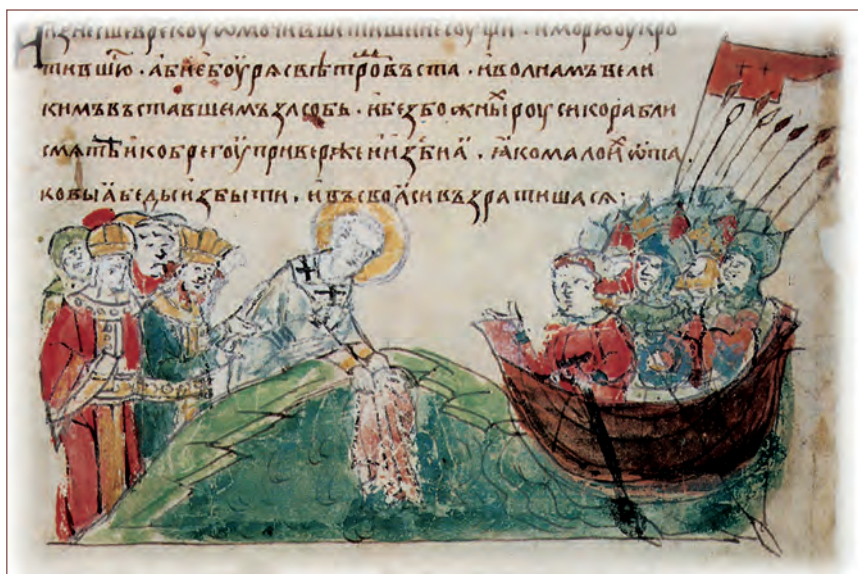 изнесше в рекоу ѡмочивше тишинѣ соущи . и морю оукро
тившюⷭ . абие боурѧ с вѣтроⷨ въста . и волнамъ вели
кимъ въставшемъ засобь . и безбожныⷯ роуси корабли
смѧте и ко брегоу привержени изби ѧ . ꙗко мало иⷯ ѿ та
ковыꙗ беды избыти . и въ своꙗси възратишасѧ :